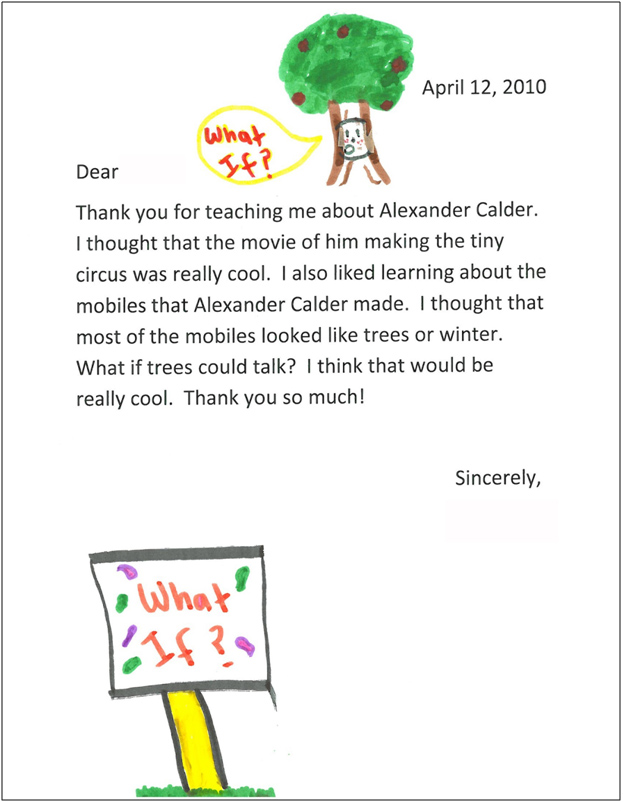 April 12, 2010
What
If?
Dear
Thank you for teaching me about Alexander Calder.
I thought that the movie of him making the tiny
circus was really cool.  I also liked learning about the
mobiles that Alexander Calder made.  I thought that
most of the mobiles looked like trees or winter.
What if trees could talk?  I think that would be
really cool.  Thank you so much!
Sincerely,
What
If?